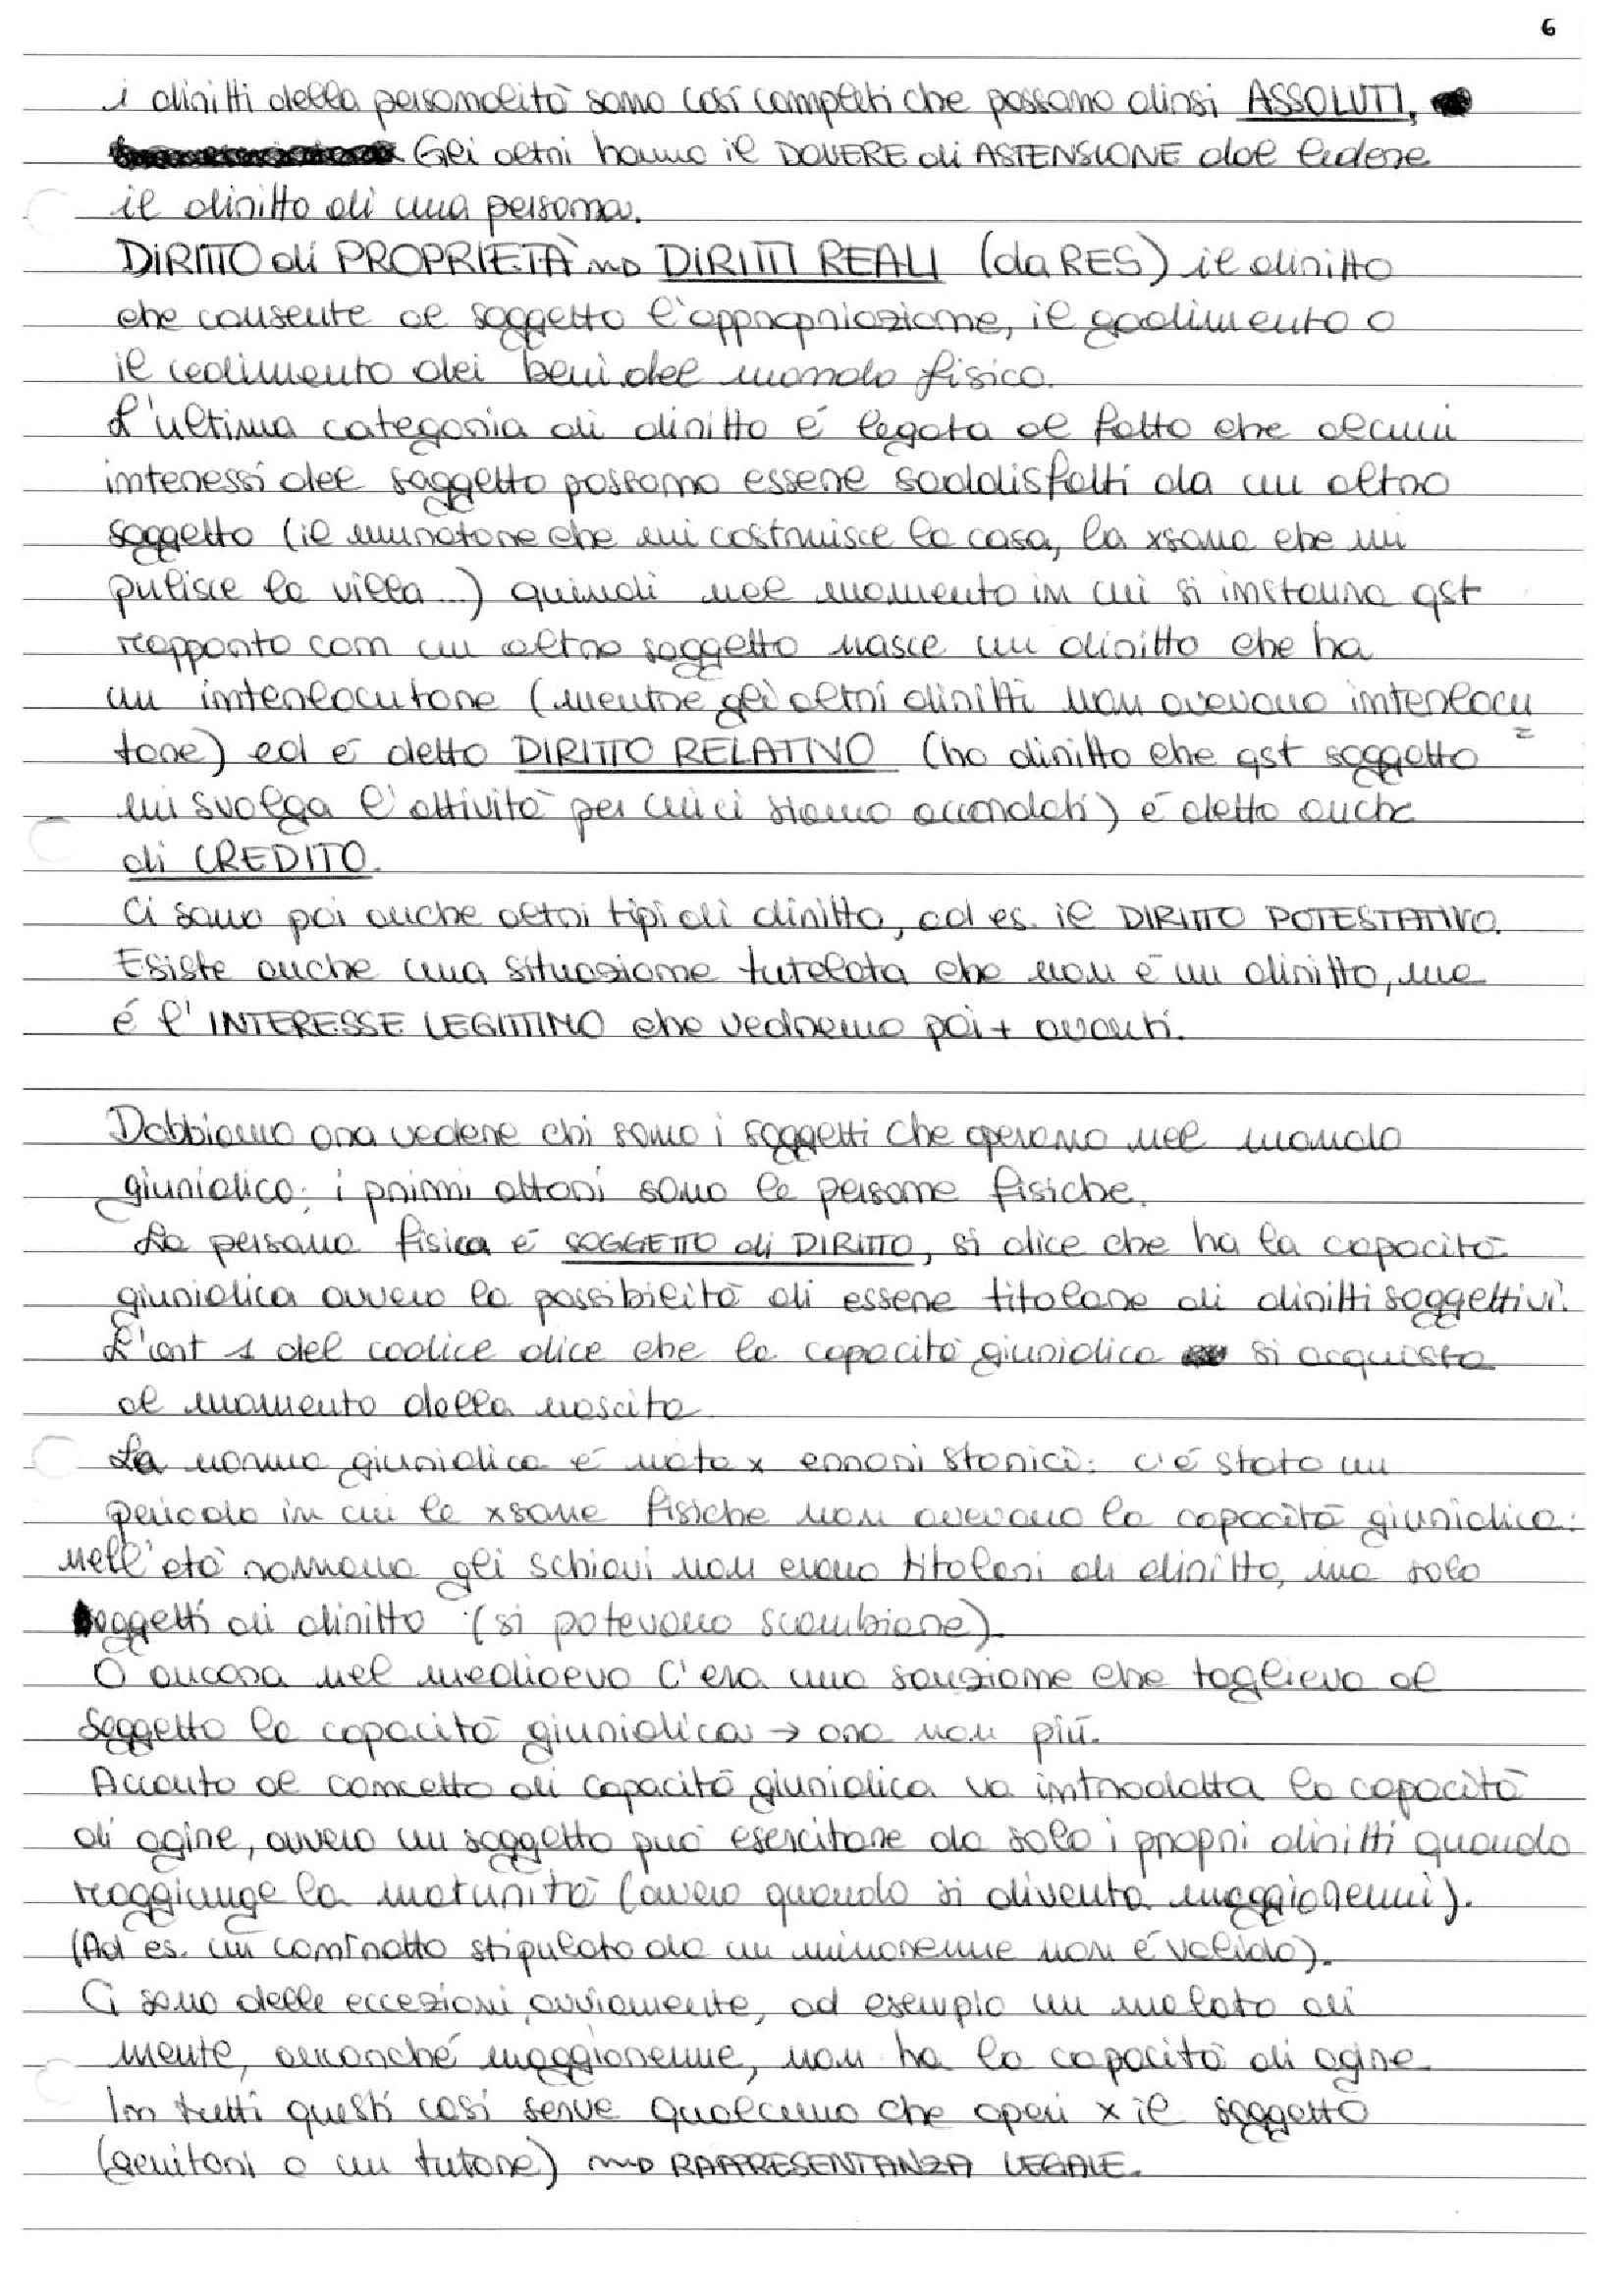 6
i diritti della personalità sono così completi che possono dirsi ASSOLUTI.
Gli altri hanno il DOVERE di ASTENSIONE dal ledere
il diritto di una persona.
DIRITTO di PROPRIETÀ ⟿ DIRITTI REALI (da RES) il diritto
che consente al soggetto l'appropriazione, il godimento o
il cedimento dei beni del mondo fisico.
L'ultima categoria di diritto é legata al fatto che alcuni
interessi del soggetto possono essere soddisfatti da un altro
soggetto (il muratore che mi costruisce la casa, la xsona che mi
pulisce la villa...) quindi nel momento in cui si instaura qst
rapporto con un altro soggetto nasce un diritto che ha
un interlocutore (mentre gli altri diritti non avevano interlocu
=
tore) ed é detto DIRITTO RELATIVO (ho diritto che qst soggetto
mi svolga l'attività per cui ci siamo accordati) é detto anche
di CREDITO.
Ci sono poi anche altri tipi di diritto, ad es. il DIRITTO POTESTATIVO.
Esiste anche una situazione tutelata che non é un diritto, ma
é l'INTERESSE LEGITTIMO che vedremo poi + avanti.
Dobbiamo ora vedere chi sono i soggetti che operano nel mondo
giuridico: i primi attori sono le persone fisiche.
La persona fisica é SOGGETTO di DIRITTO, si dice che ha la capacità
giuridica ovvero la possibilità di essere titolare di diritti soggettivi.
L'art 1 del codice dice che la capacità giuridica si acquista
al momento della nascita
La norma giuridica é nata x errori storici: c'é stato un
periodo in cui le xsone fisiche non avevano la capacità giuridica:
nell'età romana gli schiavi non erano titolari di diritto, ma solo
oggetti di diritto (si potevano scambiare).
O ancora nel medioevo c'era una sanzione che toglieva al
soggetto la capacità giuridica → ora non più.
Accanto al concetto di capacità giuridica va introdotta la capacità
di agire, ovvero un soggetto può esercitare da solo i propri diritti quando
raggiunge la maturità (ovvero quando si diventa maggiorenni).
(Ad es. un contratto stipulato da un minorenne non é valido).
Ci sono delle eccezioni, ovviamente, ad esempio un malato di
mente, ancorché maggiorenne, non ha la capacità di agire.
In tutti questi casi serve qualcuno che operi x il soggetto
(genitori o un tutore) ⟿ RAPPRESENTANZA LEGALE.